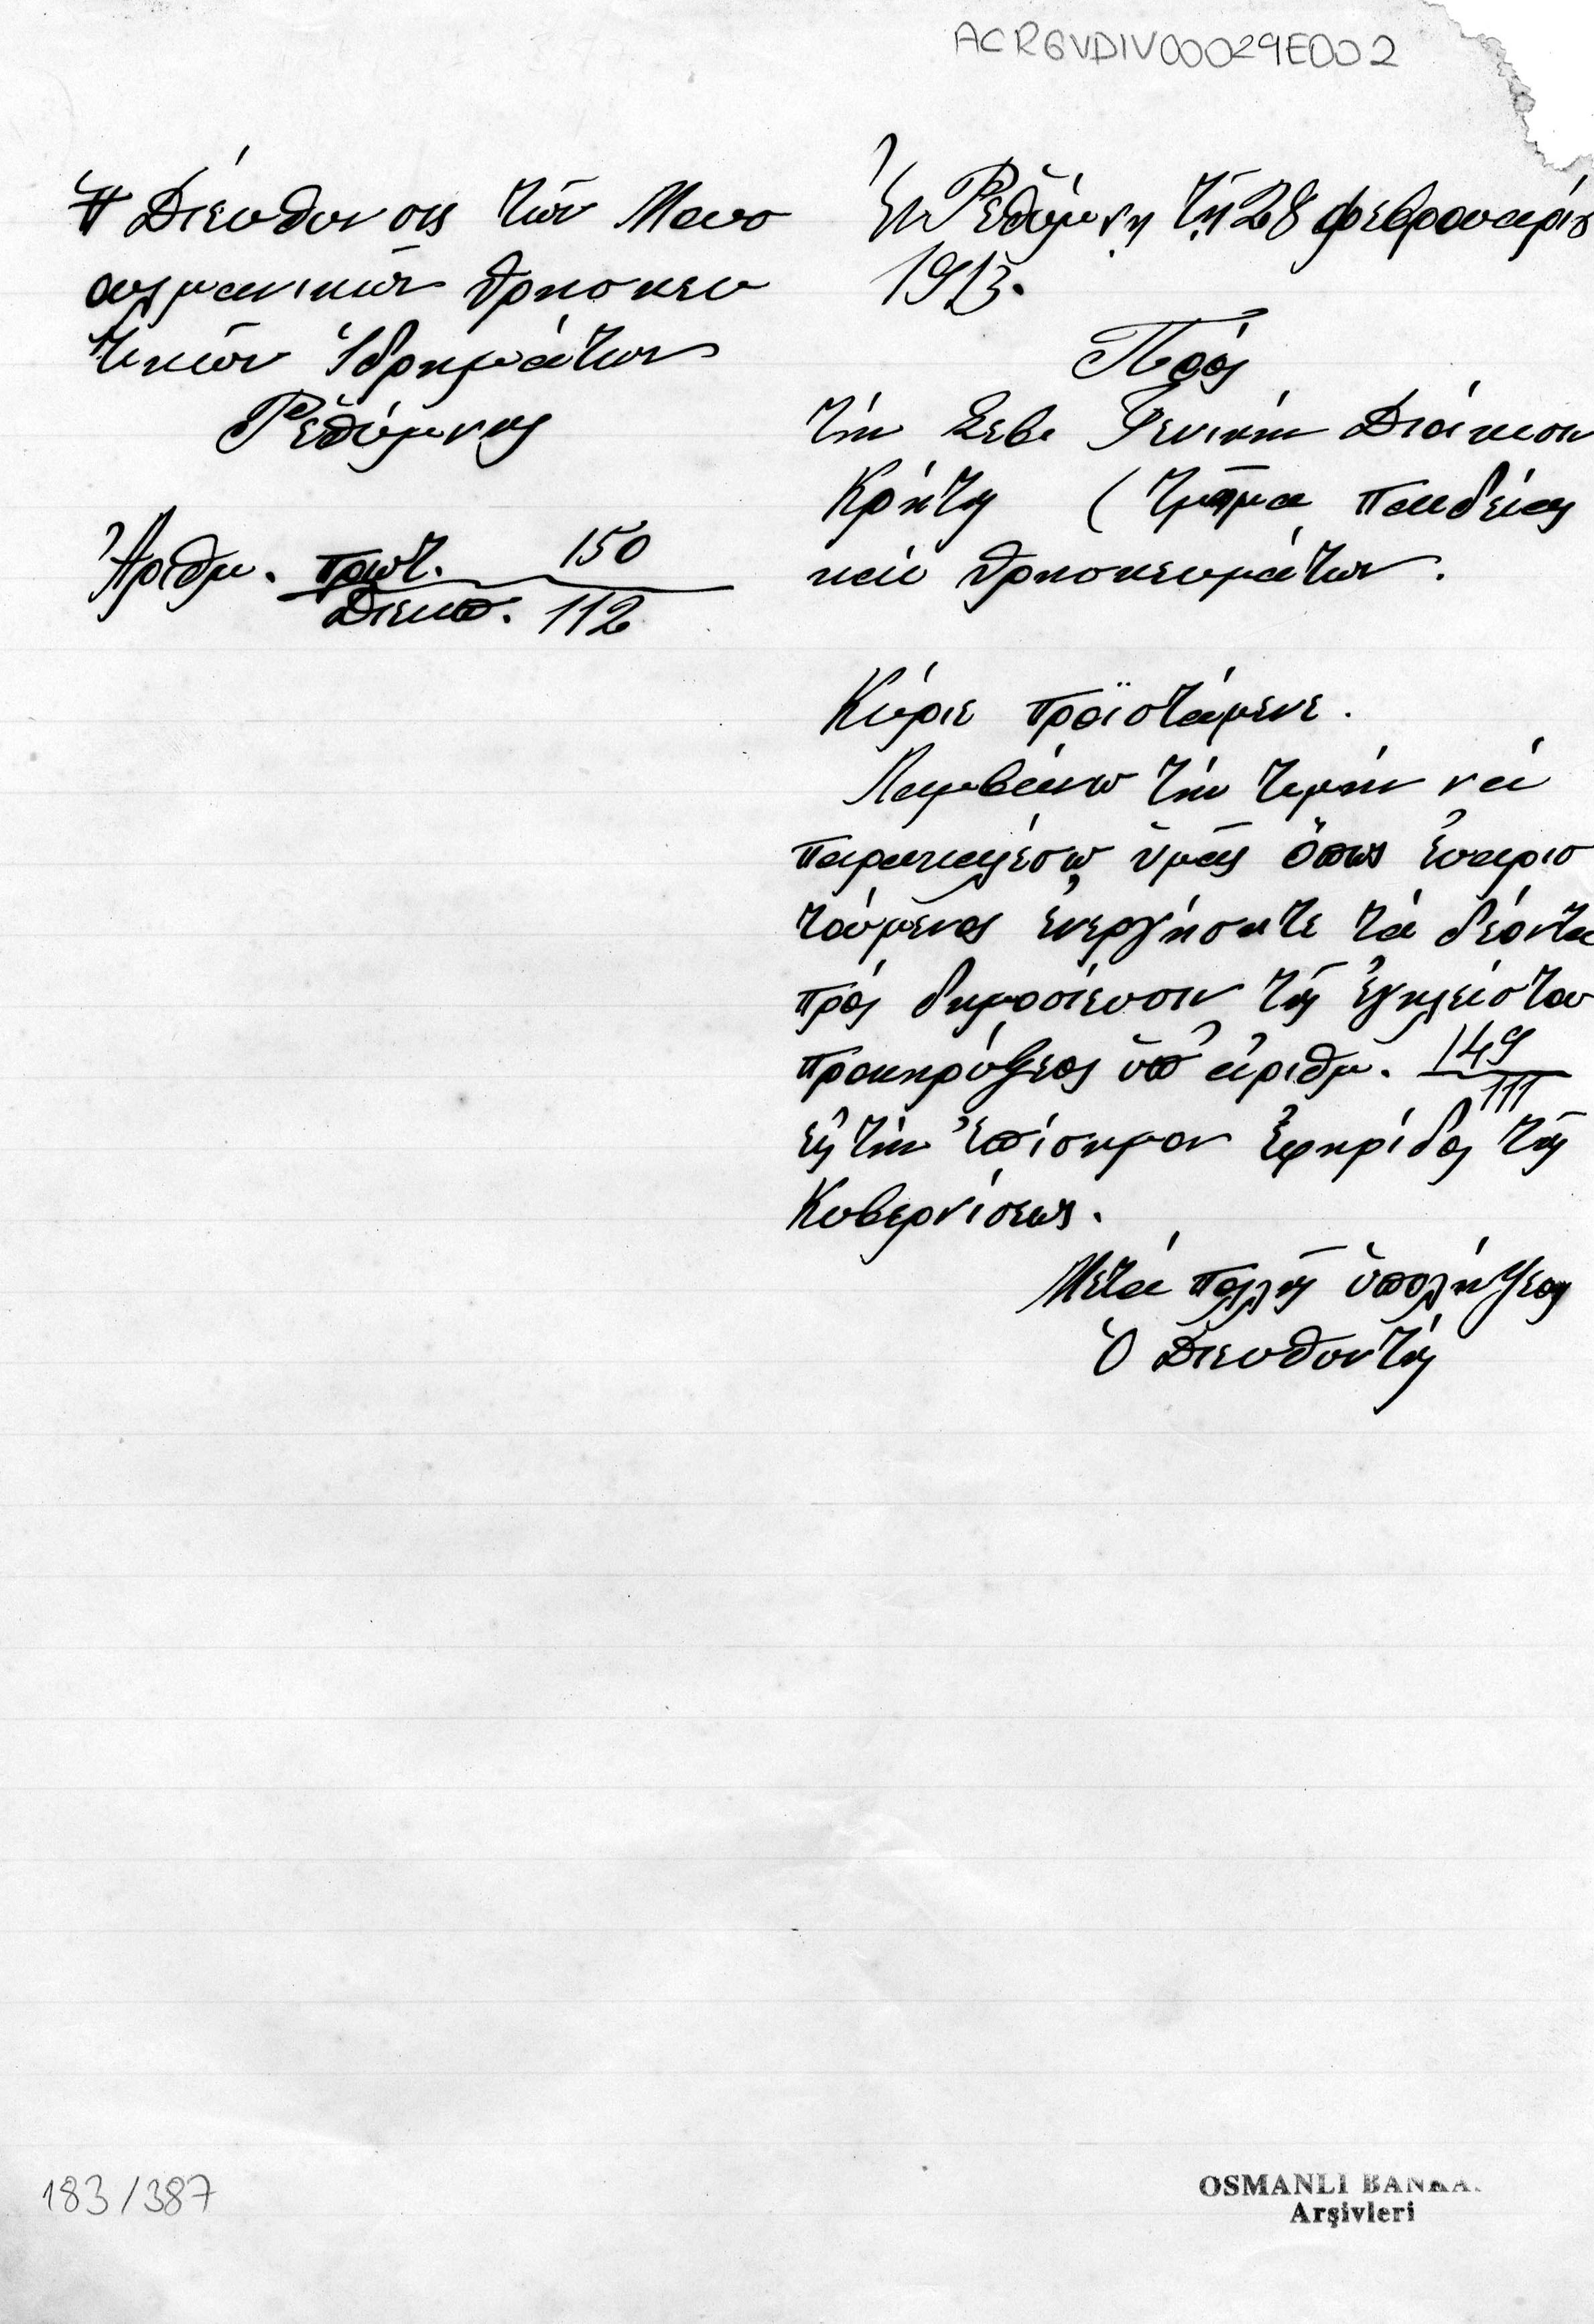 ACRGVDIV00029E002
Ἡ Διεύθυνσις τῶν Μουσ
ουλμανικῶν θρησκευ
τικῶν Ἱδρυμάτων
Ρεθύμνης
Ἀριθμ. πρωτ. 150
Διεκπ. 112
Ἐν Ρεθύμνῃ τῇ 28 φεβρουαρίου
1913.
Πρὸς
τὴν Σεβ. Γενικὴν Διοίκησιν
Κρήτης (τμῆμα παιδείας
καὶ θρησκευμάτων.
Κύριε προϊστάμενε.
Λαμβάνω τὴν τιμὴν νὰ
παρακαλέσω ὑμᾶς ὅπως εὐαρισ
τούμενος ἐνεργήσητε τὰ δέοντα
πρὸς δημοσίευσιν τῆς ἐγκλείστου
προκηρύξεως ὑπ' ἀριθμ. 149
111
εἰς τὴν ἐπίσημον ἐφημρίδος τῆς
Κυβερνίσεως.
Μετὰ πολλῆς ὑπολήψεως
Ὁ Διευθυντής
183/387
OSMANLI BANKA
Arşivleri